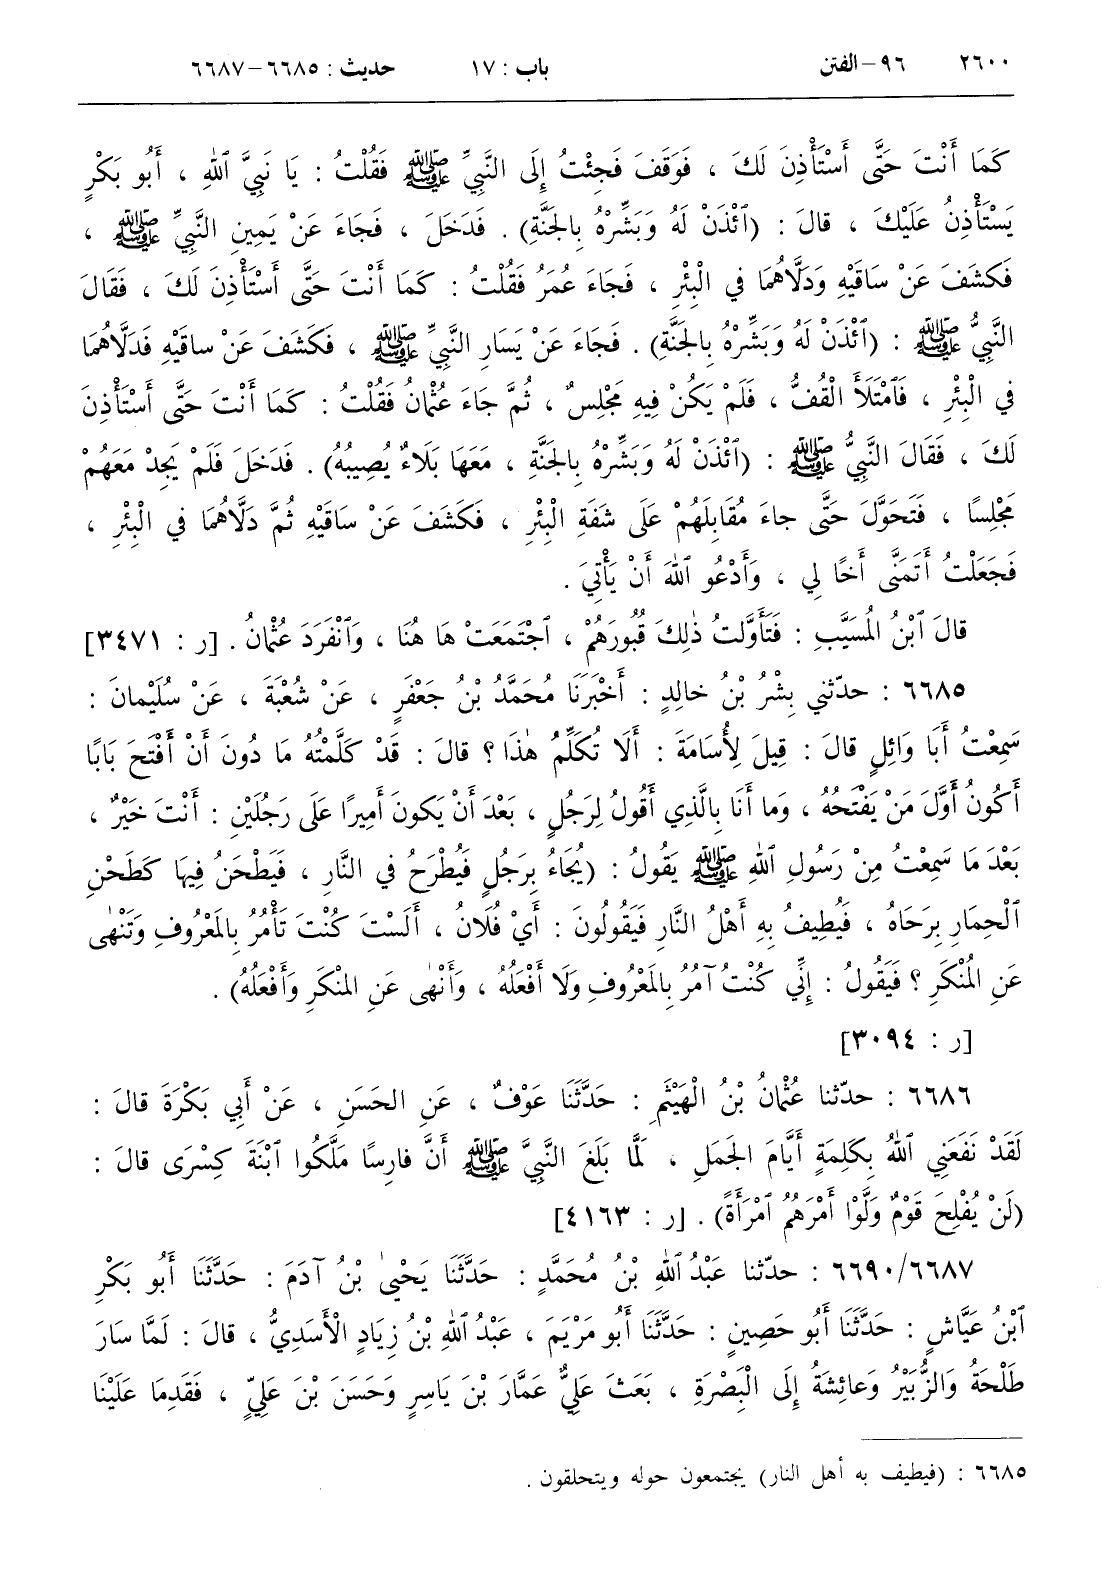 ٢٦٠٠ ٩٦-الفتن باب : ١٧ حديث : ٦٦٨٥-٦٦٨٧
كَمَا أَنْتَ حَتَّى أَسْتَأْذِنَ لَكَ ، فَوَقَفَ فَجِئْتُ إِلَى النَّبِيِّ ﷺ فَقُلْتُ : يَا نَبِيَّ ٱللهِ ، أَبُو بَكْرٍ
يَسْتَأْذِنُ عَلَيْكَ ، قالَ : (ٱئْذَنْ لَهُ وَبَشِّرْهُ بِالجَنَّةِ) . فَدَخَلَ ، فَجَاءَ عَنْ يَمِينِ النَّبِيِّ ﷺ ،
فَكَشَفَ عَنْ سَاقَيْهِ وَدَلَّاهُمَا في الْبِئْرِ ، فَجَاءَ عُمَرُ فَقُلْتُ : كَمَا أَنْتَ حَتَّى أَسْتَأْذِنَ لَكَ ، فَقَالَ
النَّبِيُّ ﷺ : (ٱئْذَنْ لَهُ وَبَشِّرْهُ بِالجَنَّةِ) . فَجَاءَ عَنْ يَسَارِ النَّبِيِّ ﷺ ، فَكَشَفَ عَنْ ساقَيْهِ فَدَلَّاهُمَا
في الْبِئْرِ ، فَٱمْتَلَأَ الْقُفُّ ، فَلَمْ يَكُنْ فِيهِ مَجْلِسٌ ، ثُمَّ جَاءَ عُثْمانُ فَقُلْتُ : كَمَا أَنْتَ حَتَّى أَسْتَأْذِنَ
لَكَ ، فَقَالَ النَّبِيُّ ﷺ : (ٱئْذَنْ لَهُ وَبَشِّرْهُ بِالجَنَّةِ ، مَعَهَا بَلَاءٌ يُصِيبُهُ) . فَدَخَلَ فَلَمْ يَجِدْ مَعَهُمْ
مَجْلِسًا ، فَتَحَوَّلَ حَتَّى جاءَ مُقَابِلَهُمْ عَلَى شَفَةِ الْبِئْرِ ، فَكَشَفَ عَنْ سَاقَيْهِ ثُمَّ دَلَّاهُمَا في الْبِئْرِ ،
فَجَعَلْتُ أَتَمَنَّى أَخًا لِي ، وَأَدْعُو ٱللهَ أَنْ يَأْتِيَ .
قالَ ٱبْنُ المُسَيَّبِ : فَتَأَوَّلتُ ذٰلِكَ قُبُورَهُمْ ، ٱجْتَمَعَتْ هَا هُنَا ، وَٱنْفَرَدَ عُثْمانُ . [ر : ٣٤٧١]
٦٦٨٥ : حدّثني بِشْرُ بْنُ خالِدٍ : أَخْبَرَنَا مُحَمَّدُ بْنُ جَعْفَرٍ ، عَنْ شُعْبَةَ ، عَنْ سُلَيْمانَ :
سَمِعْتُ أَبَا وَائِلٍ قالَ : قِيلَ لِأُسَامَةَ : أَلَا تُكَلِّمُ هٰذَا ؟ قالَ : قَدْ كَلَّمْتُهُ مَا دُونَ أَنْ أَفْتَحَ بَابًا
أَكُونُ أَوَّلَ مَنْ يَفْتَحُهُ ، وَما أَنَا بِالَّذِي أَقُولُ لِرَجُلٍ ، بَعْدَ أَنْ يَكونَ أَمِيرًا عَلَى رَجُلَيْنِ : أَنْتَ خَيْرٌ ،
بَعْدَ مَا سَمِعْتُ مِنْ رَسُولِ ٱللهِ ﷺ يَقُولُ : (يُجَاءُ بِرَجُلٍ فَيُطْرَحُ في النَّارِ ، فَيَطْحَنُ فِيهَا كَطَحْنِ
ٱلْحِمَارِ بِرَحَاهُ ، فَيُطِيفُ بِهِ أَهْلُ النَّارِ فَيَقُولُونَ : أَيْ فُلَانُ ، أَلَسْتَ كُنْتَ تَأْمُرُ بِالمَعْرُوفِ وَتَنْهٰى
عَنِ المُنْكَرِ ؟ فَيَقُولُ : إِنِّي كُنْتُ آمُرُ بِالمَعْرُوفِ وَلَا أَفْعَلُهُ ، وَأَنْهٰى عَنِ المُنْكَرِ وَأَفْعَلُهُ) .
[ر : ٣٠٩٤]
٦٦٨٦ : حدّثنا عُثْمانُ بْنُ الْهَيْثَمِ : حَدَّثَنَا عَوْفٌ ، عَنِ الحَسَنِ ، عَنْ أَبِي بَكْرَةَ قالَ :
لَقَدْ نَفَعَنِي ٱللهُ بِكَلِمَةٍ أَيَّامَ الجَمَلِ ، لَمَّا بَلَغَ النَّبِيَّ ﷺ أَنَّ فارِسًا مَلَّكُوا ٱبْنَةَ كِسْرَى قالَ :
(لَنْ يُفْلِحَ قَوْمٌ وَلَّوْا أَمْرَهُمُ ٱمْرَأَةً) . [ر : ٤١٦٣]
٦٦٩٠/٦٦٨٧ : حدّثنا عَبْدُ ٱللهِ بْنُ مُحَمَّدٍ : حَدَّثَنَا يَحْيىٰ بْنُ آدَمَ : حَدَّثَنَا أَبُو بَكْرِ
ٱبْنُ عَيَّاشٍ : حَدَّثَنَا أَبُو حَصِينٍ : حَدَّثَنَا أَبُو مَرْيَمَ ، عَبْدُ ٱللهِ بْنُ زِيَادٍ الْأَسَدِيُّ ، قالَ : لَمَّا سَارَ
طَلْحَةُ وَالزُّبَيْرُ وَعائِشَةُ إِلَى الْبَصْرَةِ ، بَعَثَ عَلِيٌّ عَمَّارَ بْنَ يَاسِرٍ وَحَسَنَ بْنَ عَلِيٍّ ، فَقَدِمَا عَلَيْنَا
٦٦٨٥ : (فيطيف به أهل النار) يجتمعون حوله ويتحلقون .